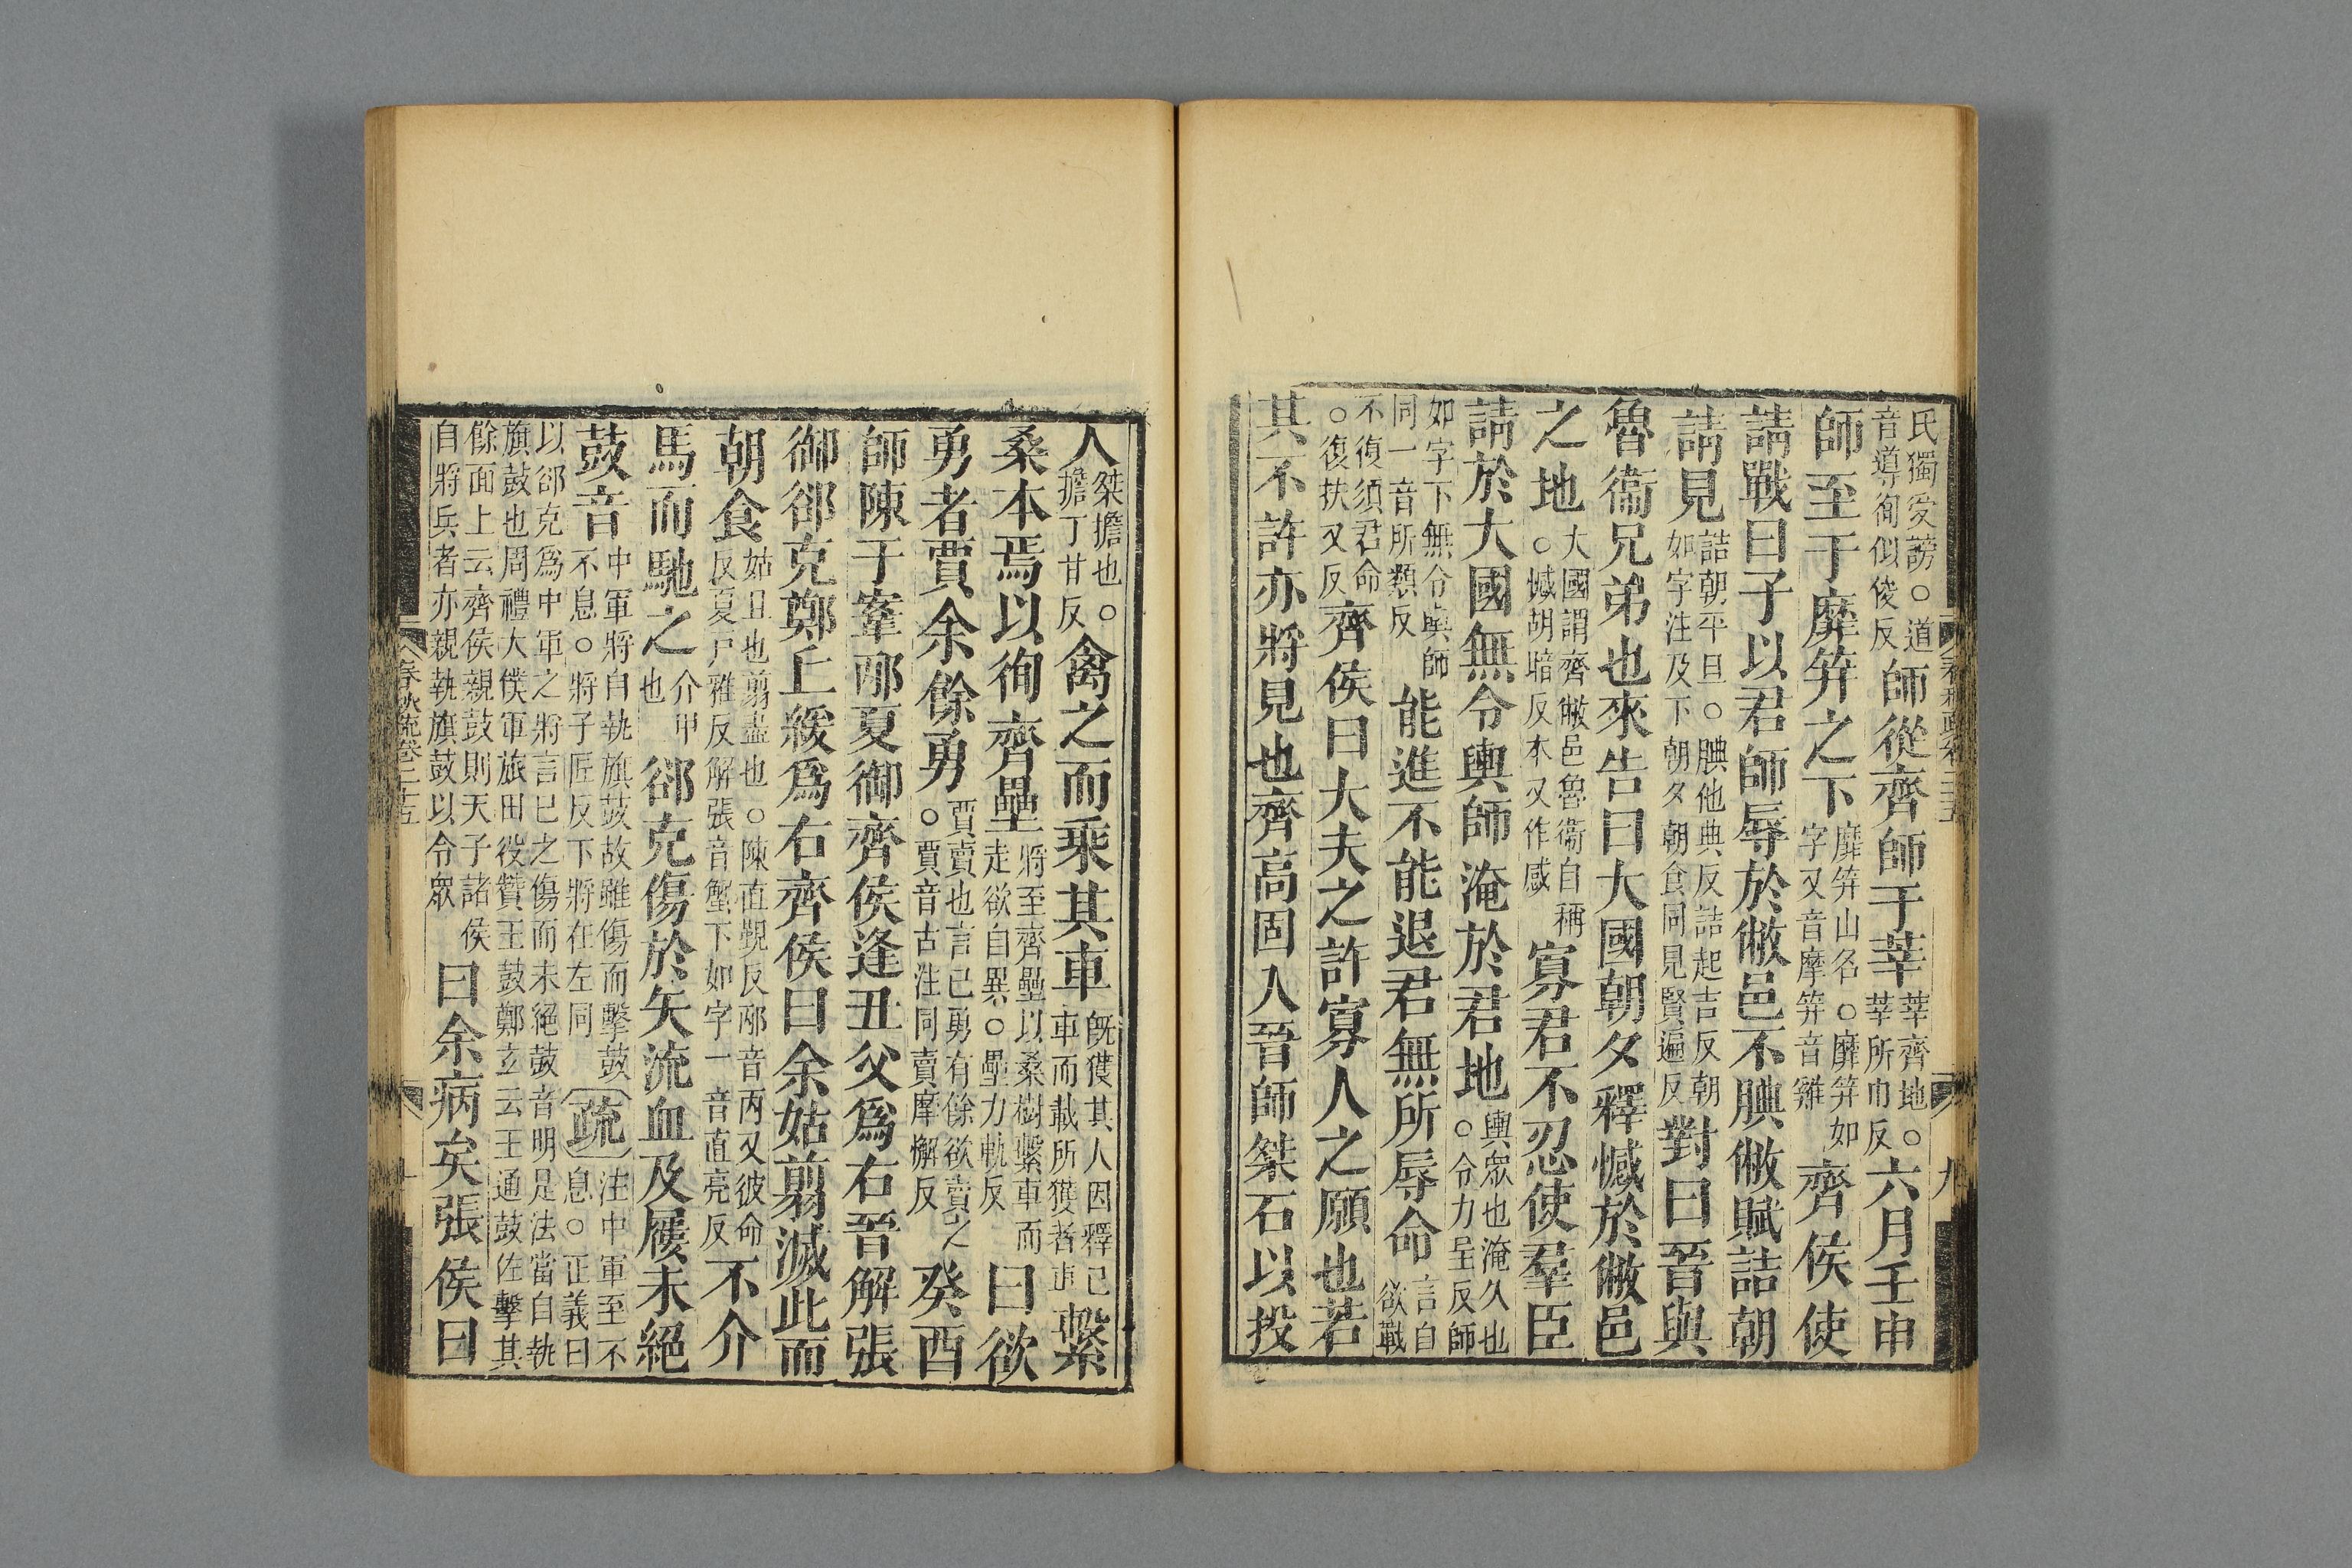 氏獨受謗○道
音導徇似俊反師從齊師于莘莘齊地○
莘所巾反六月壬申
師至于靡笄之下靡笄山名○靡笄如
字又音摩笄音雞齊侯使
請戰曰子以君師辱於敝邑不腆敝賦詰朝
請見詰朝平旦○腆他典反詰起吉反朝
如字注及下朝夕朝食同見賢遍反對曰晉與
魯衞兄弟也來告曰大國朝夕釋憾於敝邑
之地大國謂齊敝邑魯衞自稱
○憾胡暗反本又作感寡君不忍使羣臣
請於大國無令輿師淹於君地輿眾也淹久也
○令力呈反師
如字下無令輿師
同一音所類反能進不能退君無所辱命言自
欲戰
不復須君命
○復扶又反齊侯曰大夫之許寡人之願也若
其不許亦將見也齊高固入晉師桀石以投
人桀擔也○
擔丁甘反禽之而乘其車既獲其人因釋己
車而載所獲者車繫
桑本焉以徇齊壘將至齊壘以桑樹繫車而
走欲自異○壘力軌反曰欲
勇者賈余餘勇賈賣也言己勇有餘欲賣之
○賈音古注同賣摩懈反癸酉
師陳于鞌邴夏御齊侯逢丑父爲右晉解張
御郤克鄭丘緩爲右齊侯曰余姑翦滅此而
朝食姑且也翦盡也○陳直覲反邴音丙又彼命
反夏戶雅反解張音蟹下如字一音直亮反不介
馬而馳之介甲
也郤克傷於矢流血及屨未絕
鼓音中軍將自執旗鼓故雖傷而擊鼓
不息○將子匠反下將將在左同疏注中軍至不
息○正義曰
以郤克爲中軍之將言已之傷而未絕鼓音明是法當自執
旗鼓也周禮大僕軍旅田役贊王鼓鄭玄云王通鼓佐擊其
餘面上云齊侯親鼓則天子諸侯
自將兵者亦親執旗鼓以令眾曰余病矣張侯曰
春秋疏卷二十五
九